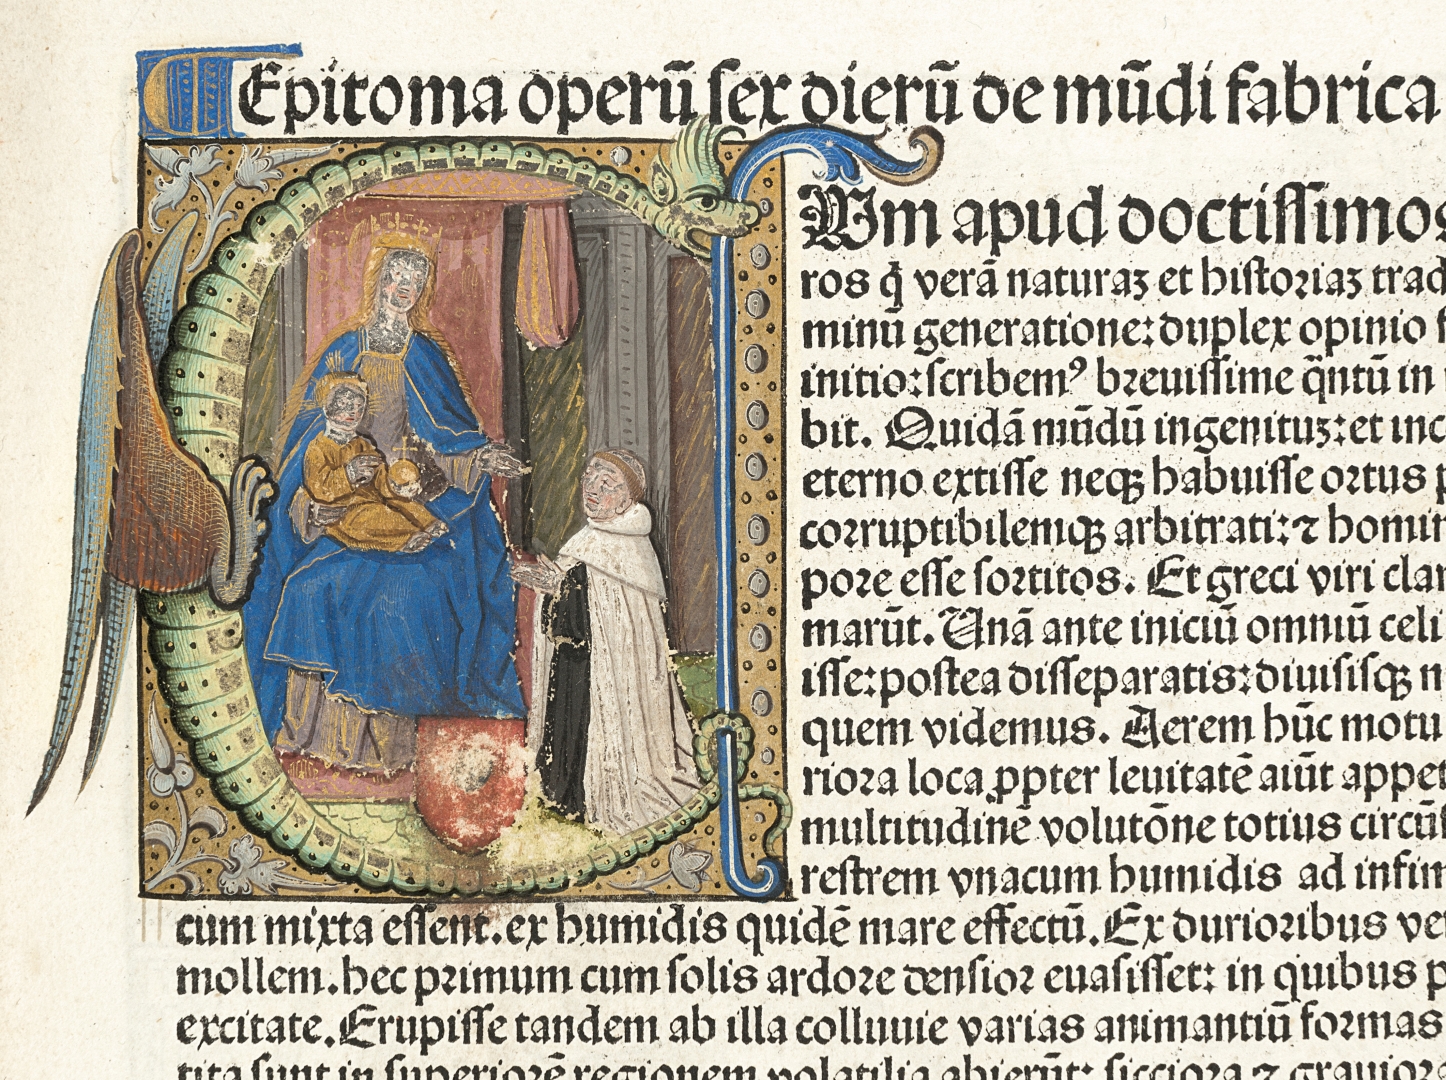 Epitoma operū sex dierū de mūdi fabrica
CUm apud doctissimos
ros q̄ verā naturaꝫ et histoꝛiaꝫ trad
minū generatione: duplex opinio
initio: scribemꝰ bꝛeuissime q̄ntū in
bit. Quidā mūdū ingenituꝫ: et inc
eterno extisse neqꝫ habuisse oꝛtus p
coꝛruptibilemqꝫ arbitrati: ⁊ homin
poꝛe esse soꝛtitos. Et greci viri clar
marūt. Unā ante iniciū omniū celi
isse: postea disseparatis: diuisisqꝫ m
quem videmus. Aerem hūc motu
rioꝛa loca ꝓpter leuitatē aiūt appet
multitudinē volutōne totius circūf
restrem vnacum humidis ad infim
cum mixta essent. ex humidis quidē mare effectū. Ex durioꝛibus ve
mollem. hec pꝛimum cum solis ardoꝛe densioꝛ euasisset: in quibus p
excitate. Erupisse tandem ab illa colluuie varias animantiū foꝛmas
tita sunt in superioꝛē regionem volatilia abierūt: sicciora ⁊ grauioꝛa